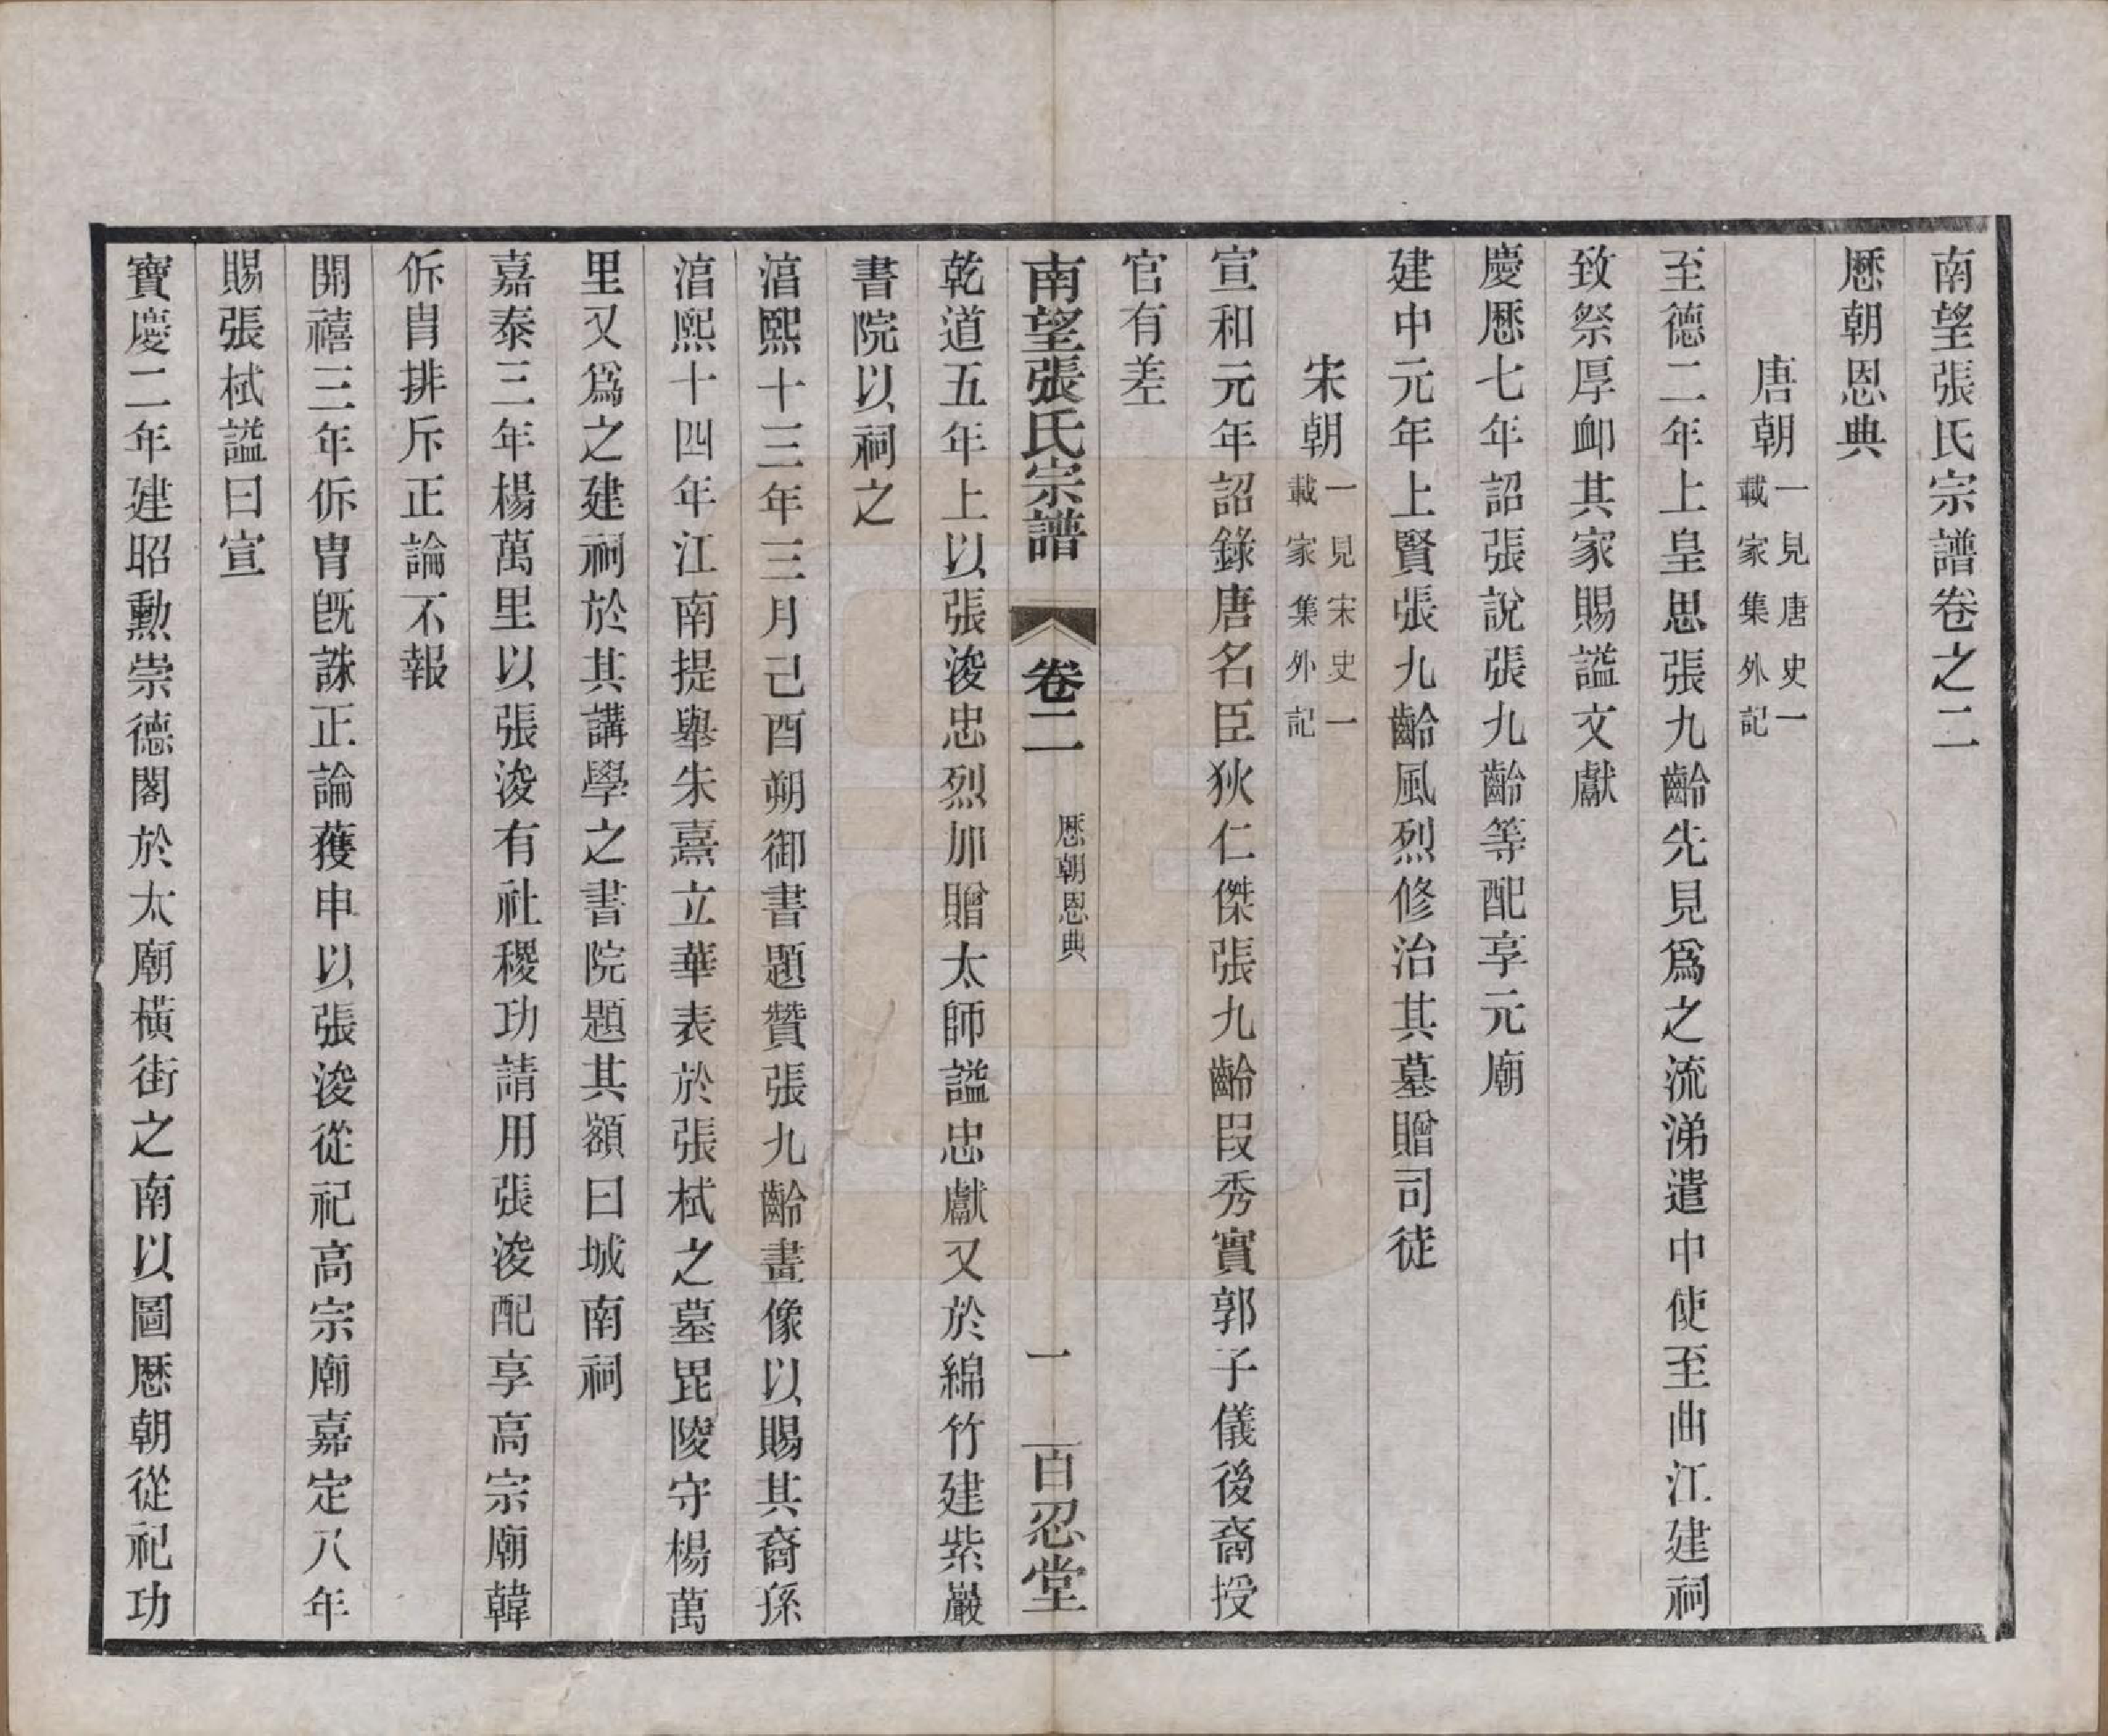 南望張氏宗譜卷之二
歷朝恩典
唐朝 一見唐史一載家集外記
至德二年上皇思張九齡先見爲之流涕遣中使至曲江建祠
致祭厚卹其家賜諡文獻
慶歷七年詔張說張九齡等配享元廟
建中元年上賢張九齡風烈修治其墓贈司徒
宋朝 一見宋史一載家集外記
宣和元年詔錄唐名臣狄仁傑張九齡段秀實郭子儀後裔授
官有差
南望張氏宗譜 卷二 歷朝恩典 一 百忍堂
乾道五年上以張浚忠烈加贈太師諡忠獻又於綿竹建紫巖
書院以祠之
淳熙十三年三月己酉朔御書題贊張九齡畫像以賜其裔孫
淳熙十四年江南提舉朱熹立華表於張栻之墓毘陵守楊萬
里又爲之建祠於其講學之書院題其額曰城南祠
嘉泰三年楊萬里以張浚有社稷功請用張浚配享高宗廟韓
侂胄排斥正論不報
開禧三年侂胄旣誅正論獲申以張浚從祀高宗廟嘉定八年
賜張栻諡曰宣
寶慶二年建昭勳崇德閣於太廟橫街之南以圖歷朝從祀功